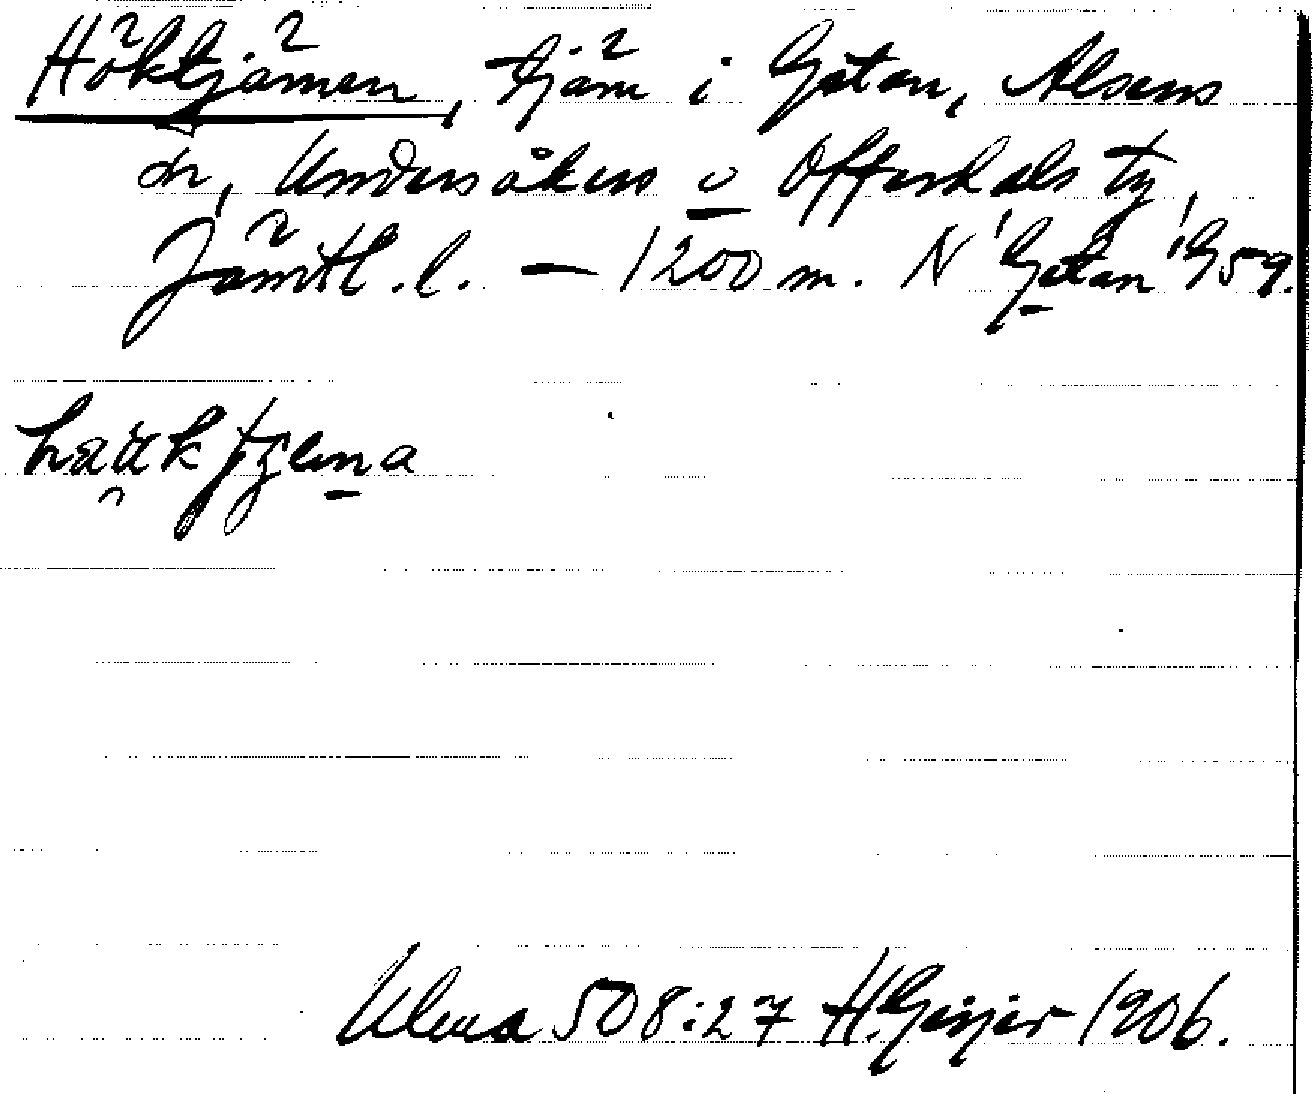 Höktjärnen, tjärn i Götan, Alsens
sn, Undersåkers o Offerdals tg,
Jämtl. l. — 1200 m. N 'Götan' G59.
Ulma 508:27 H. Geijer 1906.